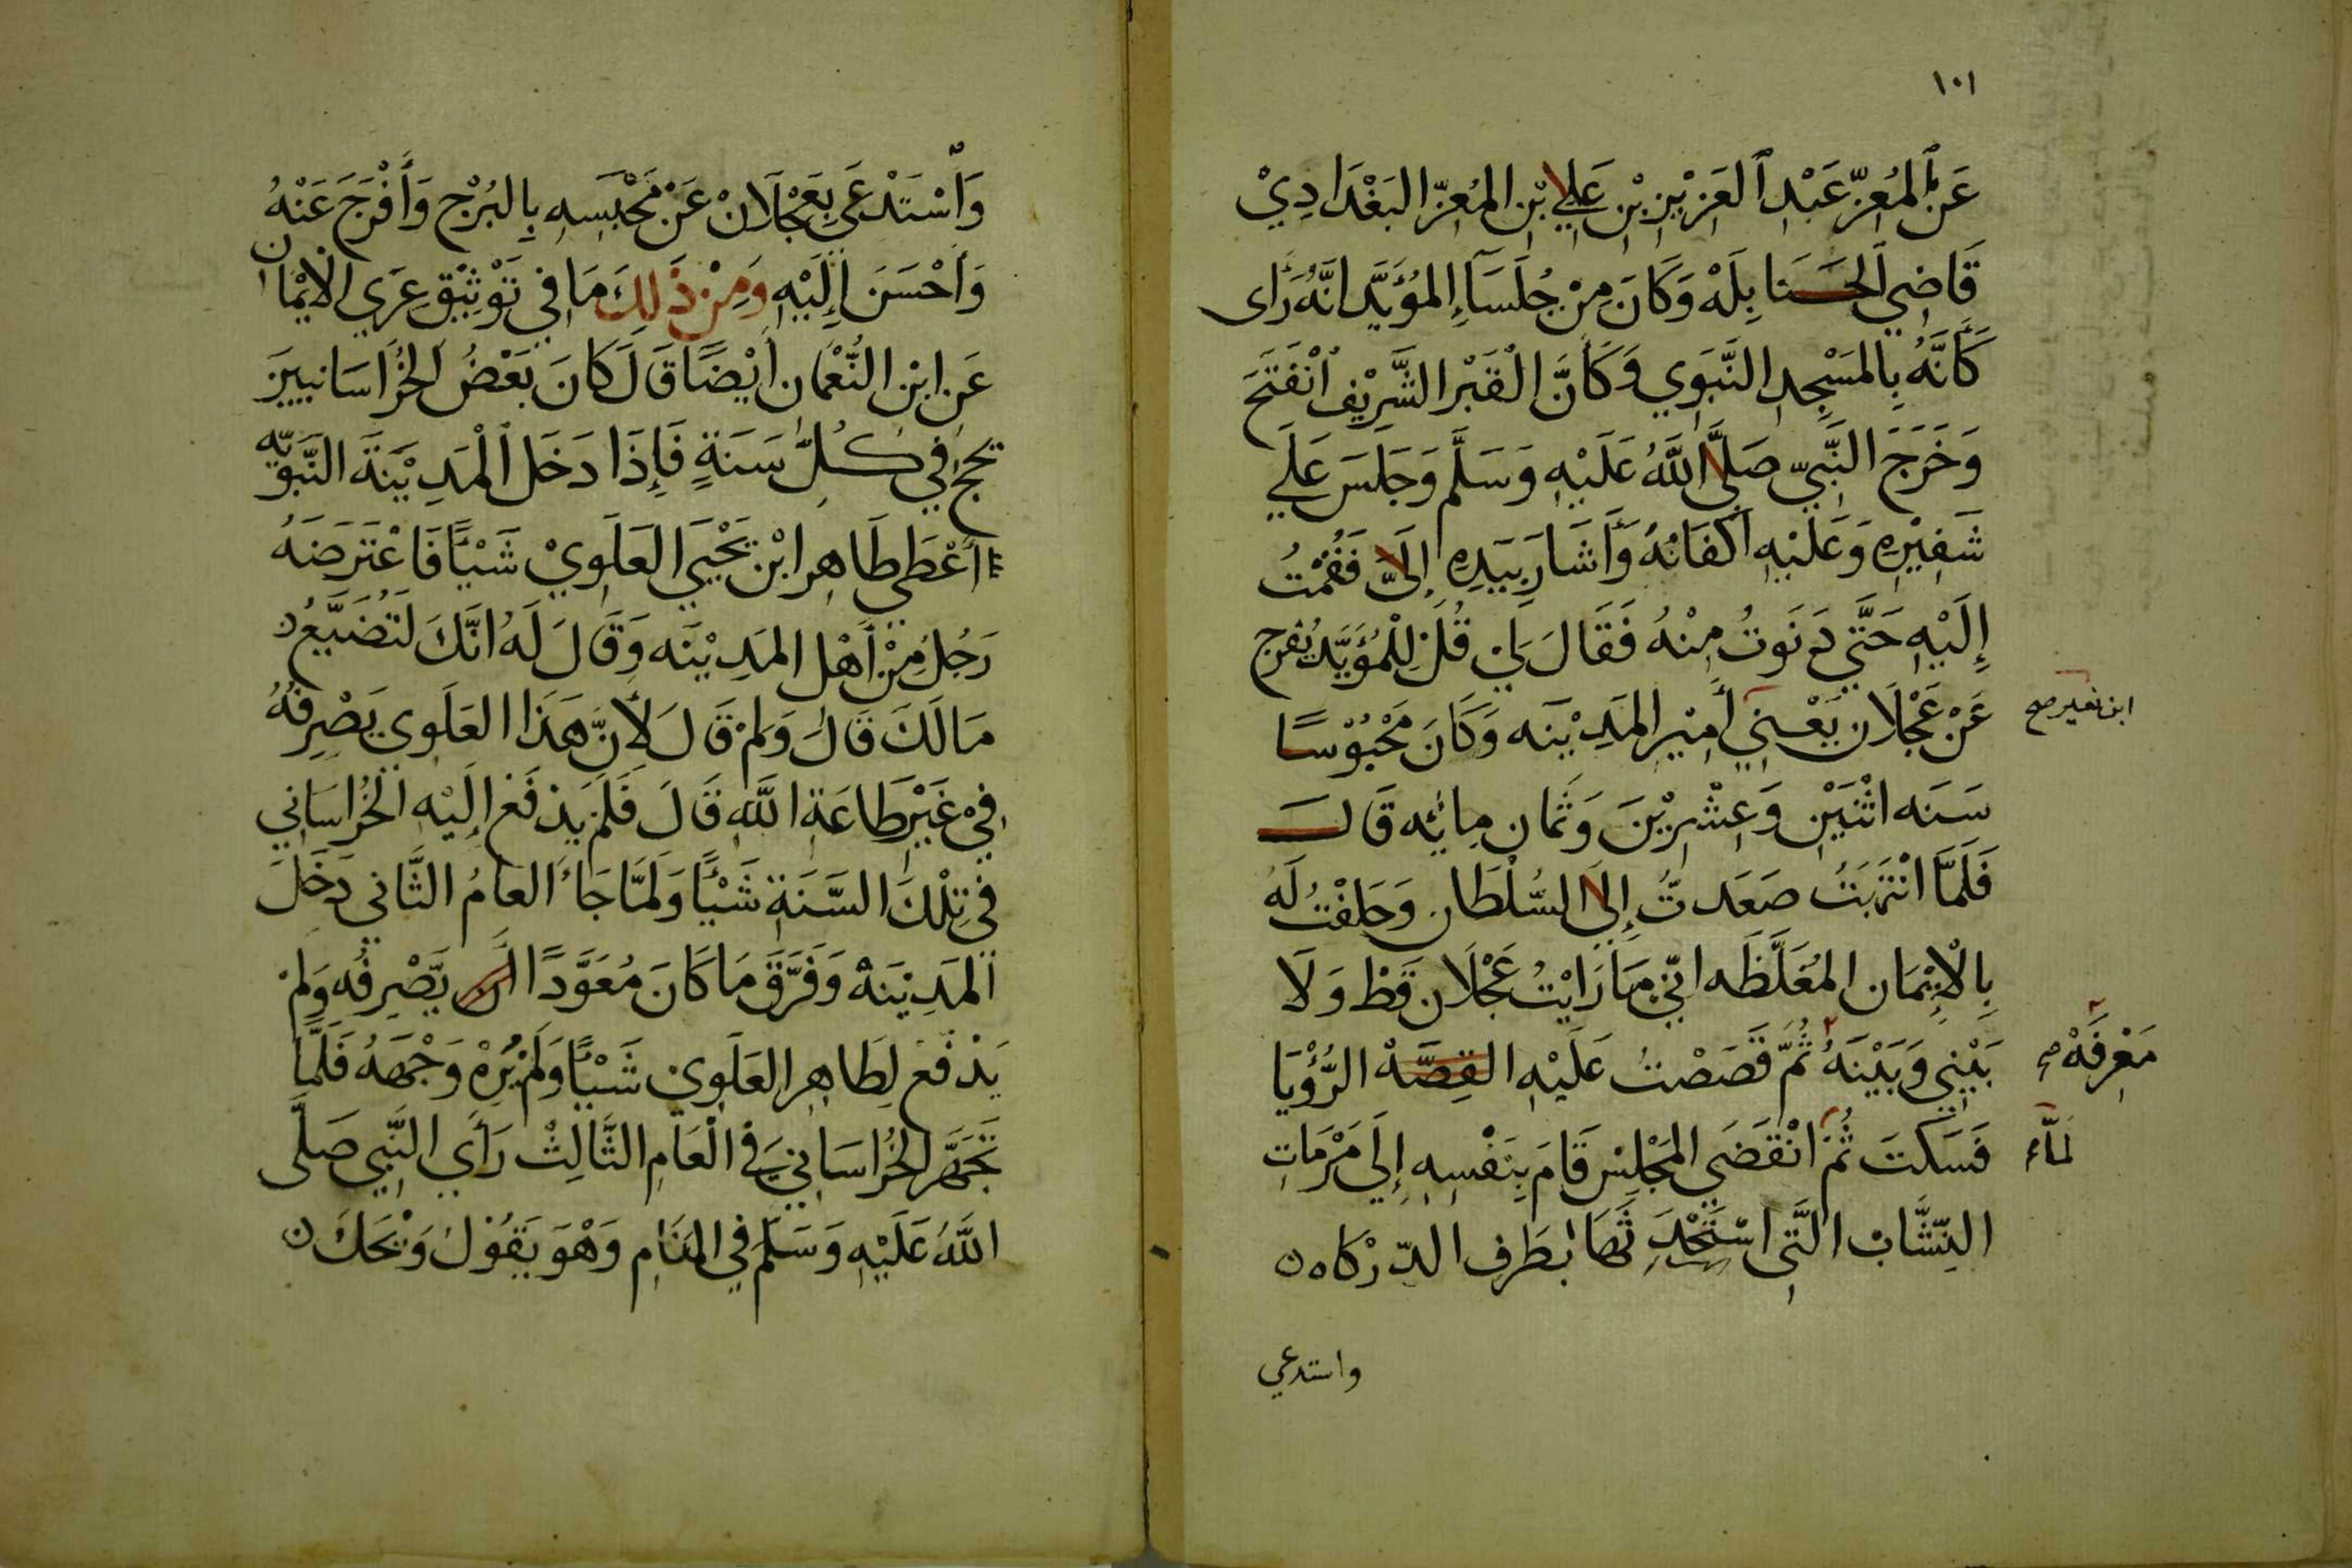 ١٠١
عَنِ المُعِزّ عَبْدِ العَزِيْزِ بْنِ عَلِي بْنِ المُعِزّ البَغْدَادِيْ
قَاضِي الحَسَنَابِلَهْ وَكَانَ مِنْ جُلَسَآءِ المُؤَيَّد انَّهُ رَأَى
كَأَنَّهُ بِالمَسْجِدِ النَّبَوِي وَكَأَنَّ الْقَبْرِ الشَّرِيْفْ انْفَتَحَ
وَخَرَجَ النَّبِيّ صَلَّى اللَّهُ عَلَيْهِ وَسَلَّم وَجَلَسَ عَلَي
شَفِيْرِهِ وَعَلَيْهِ اَكفَانُهُ وَأَشَارَ بِيَدِهِ إِلَيَّ فَقُمْتُ
إِلَيْهِ حَتَّي دَنَوتُ مِنْهُ فَقَالَ لِي قُلْ لِلْمُؤَيَّد يُفرج
عَنْ عَجْلَان يَعْنِي أَمِيْرِ المَدِيْنَه وَكَانَ مَحْبُوْسًا
ابن نعير صح
سَنَه اثْنَيْنِ وَعِشْرِيْنَ وَثَمَان مِائه قَالَ
فَلَمَّا انْتَبَهتُ صَعَدتُّ إِلَى السُّلْطَان وَحَلفْتُ لَهُ
بِالْايْمَان المُغَلَّظَه انِّي مَا رَايْتُ عَجْلَان قَطْ وَلَا
بَيْنِي وَبَيْنَهُ ثُمَّ قَصَصْتُ عَلَيْهِ القِصَّهْ الرُّؤْيَا
مَعْرِفَهْ صح
فَسَكتَ ثُمَّ انْقَضَي المَجْلِسْ قَامَ بِنَفْسِهِ إِلَي مَرْمَاتِ
لَمَّا
النِشَّابْ الَّتِي اسْتَحْدَثَهَا بطَرفِ الدّرْكَاه
واستدعي
وَاسْتَدْعَي بِعَجْلَانْ عَنْ مَحْبَسِهِ بِالبُرْجِ وَأَفْرَجَ عَنْهُ
وَأَحْسَنَ إِلَيْهِ وَمِنْ ذَلِكَ مَا فِي تَوْثِيْقِ عِرَي الْايْمَان
عَنِ ابْنِ النُّعْمَان اَيْضًا قَالَ كَانَ بَعْضُ الخُرَاسَانيينَ
يحج في كُلِّ سَنَةٍ فَإِذَا دَخَل الْمَدِيْنَةَ النَّبويّه
أَعْطَي طَاهِر ابْن يَحْيَي العَلَوِيْ شَيْئًا فَاعْتَرَضَهُ
رَجُلُ مِنْ أَهْلِ المَدِيْنَه وَقَالَ لَهُ انَّكَ لَتُضَيِّعُ
مَالَكَ قَالَ وَلِمْ قَالَ لأَنَّ هَذَا العَلَوِي يَصْرِفُهُ
فِيْ غَيْرِ طَاعَةِ اللَّهِ قَالَ فَلَمْ يَدْفَع إِلَيْهِ الخُرَاسَانِي
فِي تِلْكَ السَّنَةِ شَيْئًا وَلَمَّا جَاءَ العَامُ الثَّانِي دَخَلَ
المَدِيْنَهْ وَفَرَّقَ مَا كَانَ مُعَوَّدًا ان يَّصْرِفُه وَلَمْ
يَدْفَع لِطَاهِر العَلَوِي شَيْئًا وَلَمْ يُرِهْ وَجْهَهُ فَلَمَّا
تَجَهَّز الخُرَاسَانِي فِي الْعَامِ الثَّالِثْ رَأَي النَّبِي صَلَّى
اللَّهُ عَلَيْهِ وَسَلَّمَ فِي المَنَامِ وَهْوَ يَقُوْلُ وَيْحَكَ